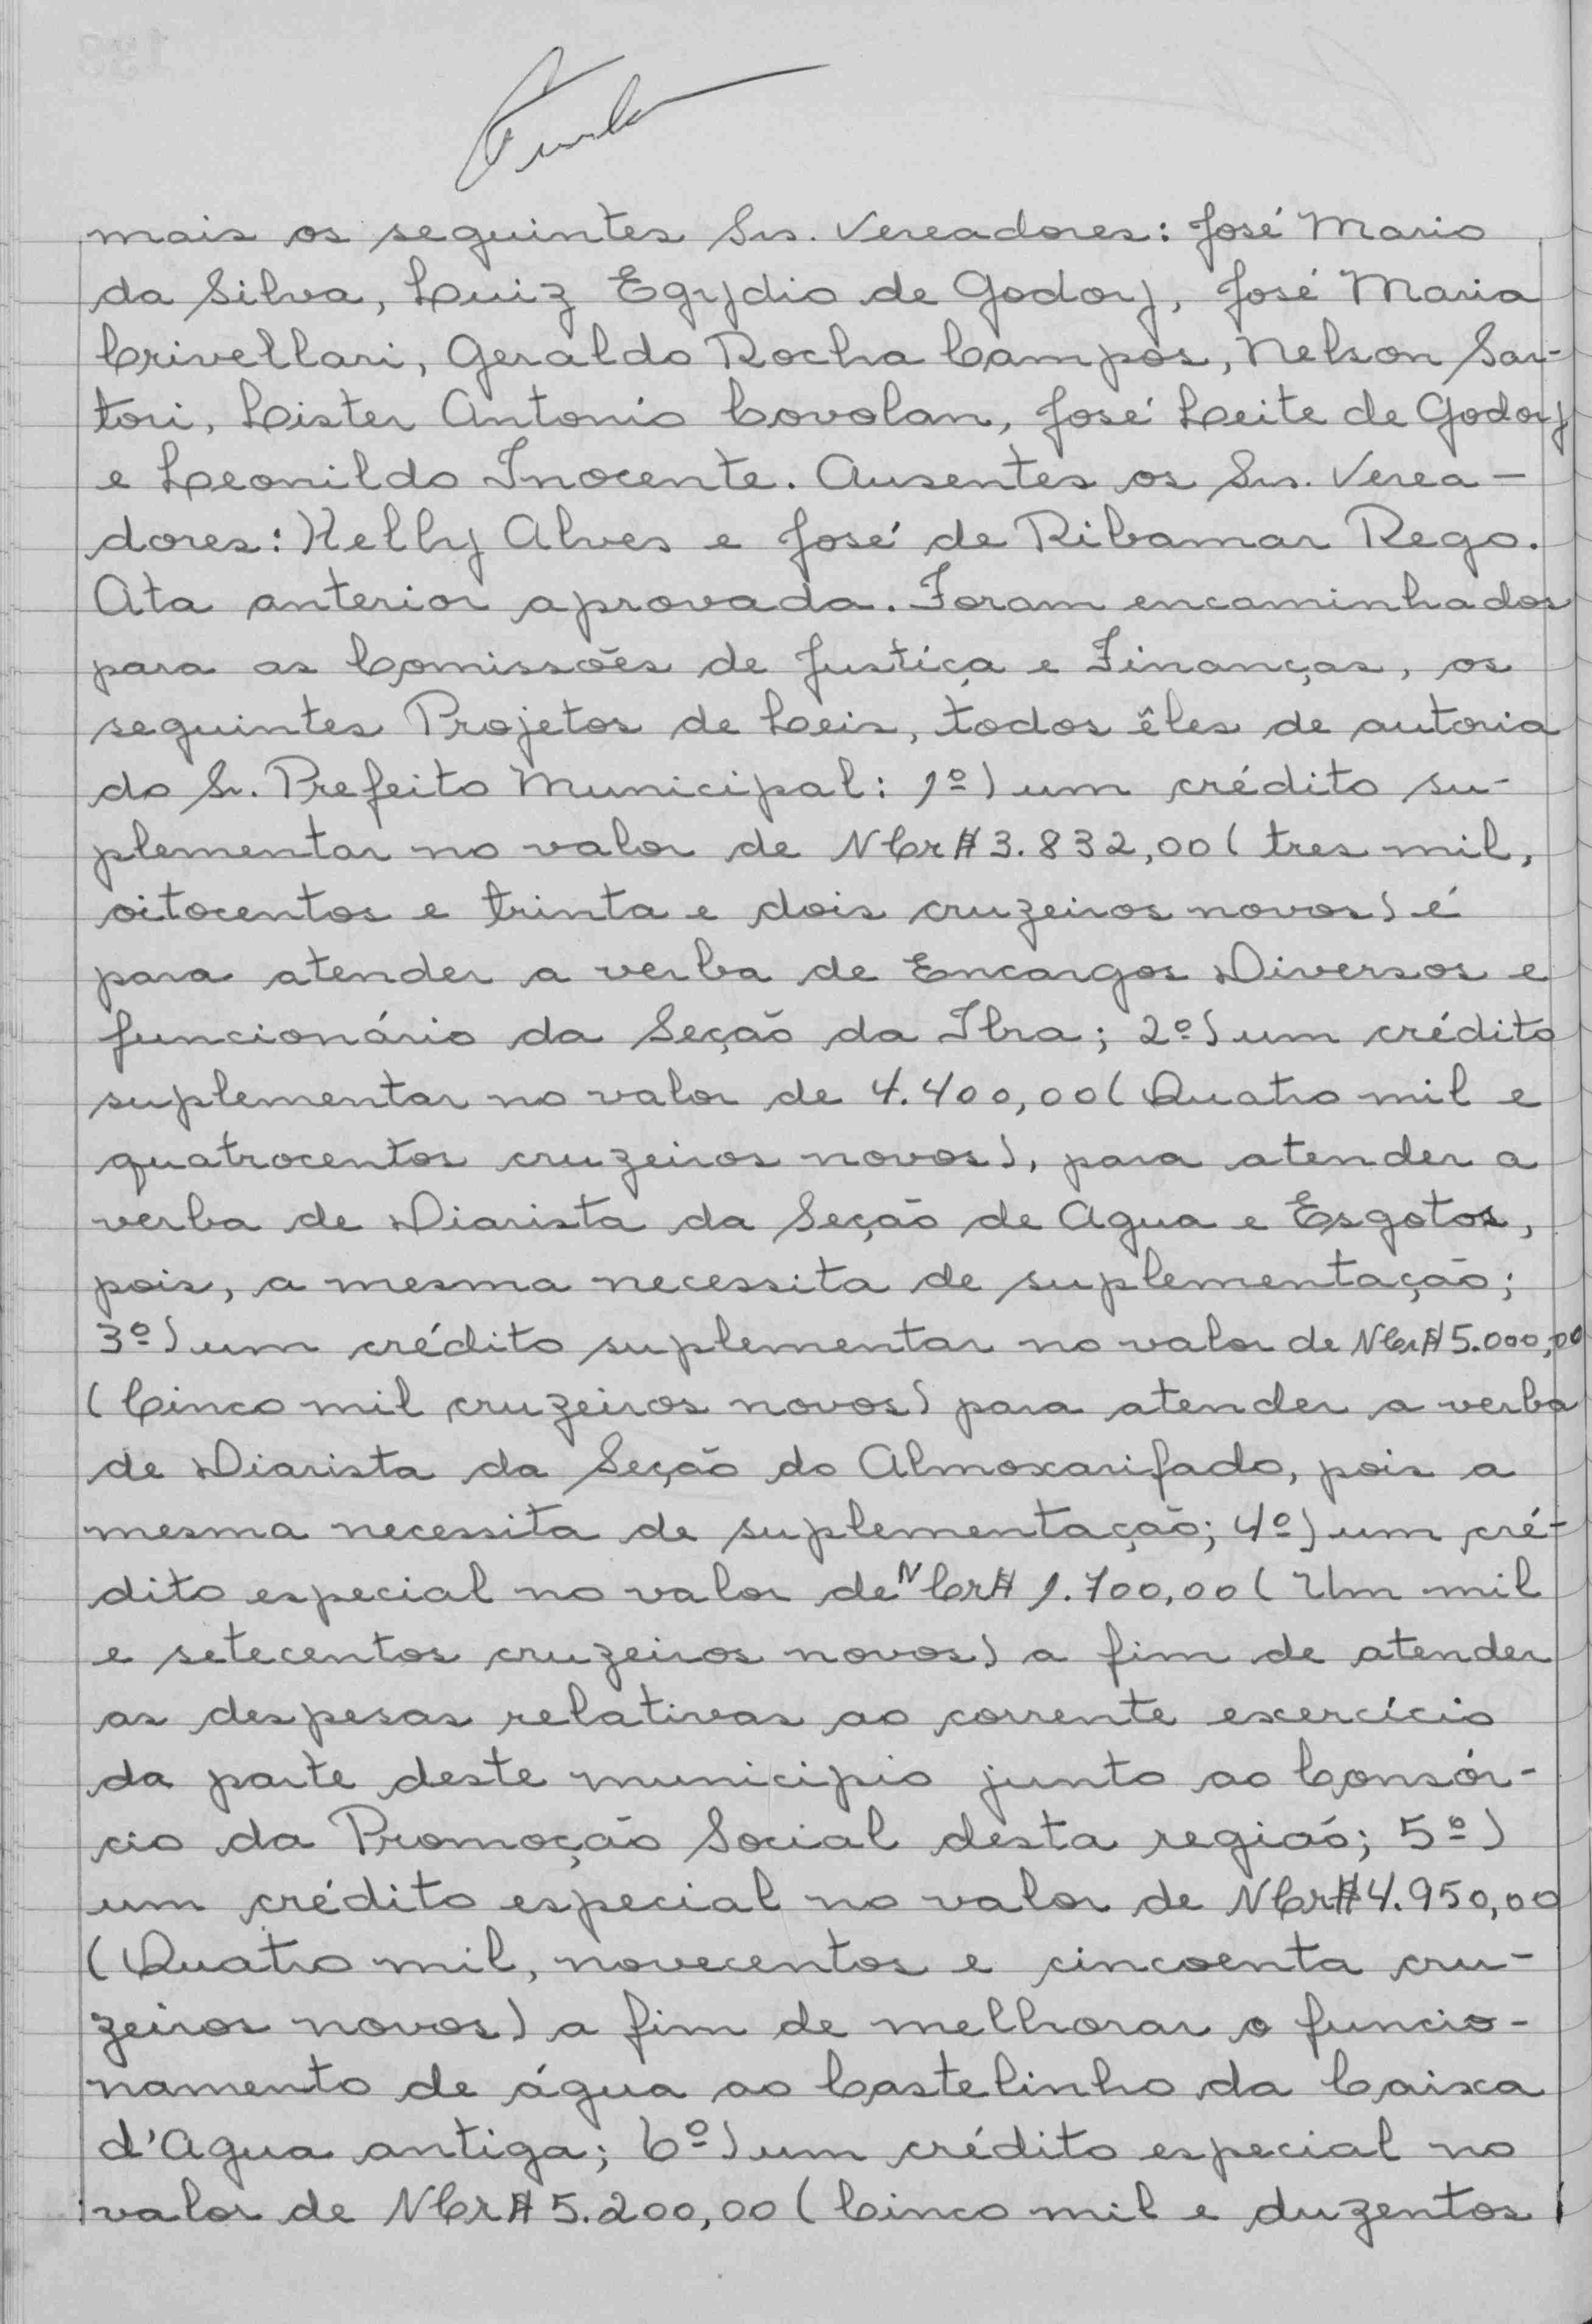 mais os seguintes Srs. Vereadores: José Mario
da Silva, Luiz Egydio de Godoy, José Maria
Crivellari, Geraldo Rocha Campos, Nelson Sar-
tori, Lister Antonio Covolan, José Leite de Godoy
e Leonildo Inocente. Ausentes os Srs. Verea-
dores: Kelly Alves e José de Ribamar Rego.
Ata anterior aprovada. Foram encaminhados
para as Comissões de Justiça e Finanças, os
seguintes Projetos de Leis, todos êles de autoria
do Sr. Prefeito Municipal: 1º) um crédito su-
plementar no valor de NCr$ 3.832,00 (tres mil,
oitocentos e trinta e dois cruzeiros novos) é
para atender a verba de Encargos Diversos e
funcionário da Seção da Ibra; 2º) um crédito
suplementar no valor de 4.400,00 (Quatro mil e
quatrocentos cruzeiros novos), para atender a
verba de Diarista da Seção de Agua e Esgotos,
pois, a mesma necessita de suplementação;
3º) um crédito suplementar no valor de NCr$ 5.000,00
(Cinco mil cruzeiros novos) para atender a verba
de Diarista da Seção do Almoxarifado, pois a
mesma necessita de suplementação; 4º) um cré-
dito especial no valor de NCr$ 1.700,00 (Um mil
e setecentos cruzeiros novos) a fim de atender
as despesas relativas ao corrente exercício
da parte deste municipio junto ao Consór-
cio da Promoção Social desta região; 5º)
um crédito especial no valor de NCr$ 4.950,00
(Quatro mil, novecentos e cincoenta cru-
zeiros novos) a fim de melhorar o funcio-
namento de água ao Castelinho da Caixa
d'Agua antiga; 6º) um crédito especial no
valor de NCr$ 5.200,00 (Cinco mil e duzentos